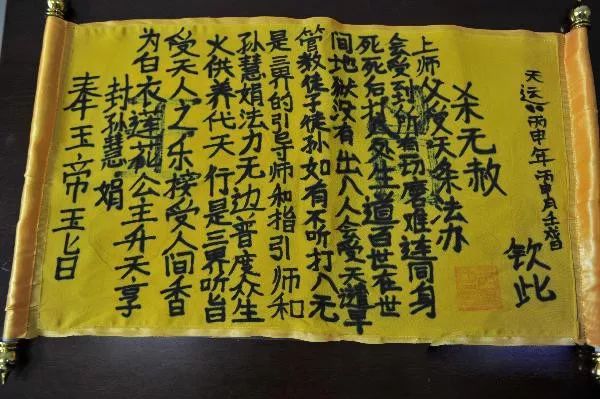 奉玉帝玉旨
封孙慧娟
为白衣莲花公主升天享
受天人之乐接受人间香
火供养代天行是三界听旨
孙慧娟法力无边普度众生
是三界的引导师和指引师和
管教徒子徒孙如有不听打入无
间地狱没有出入人会受天谴早
死死后打入畜生道百世在世
会受到所有切磨难连同身
上师父受天条法办
杀无赦
钦此
天运丙申年丙申月壬